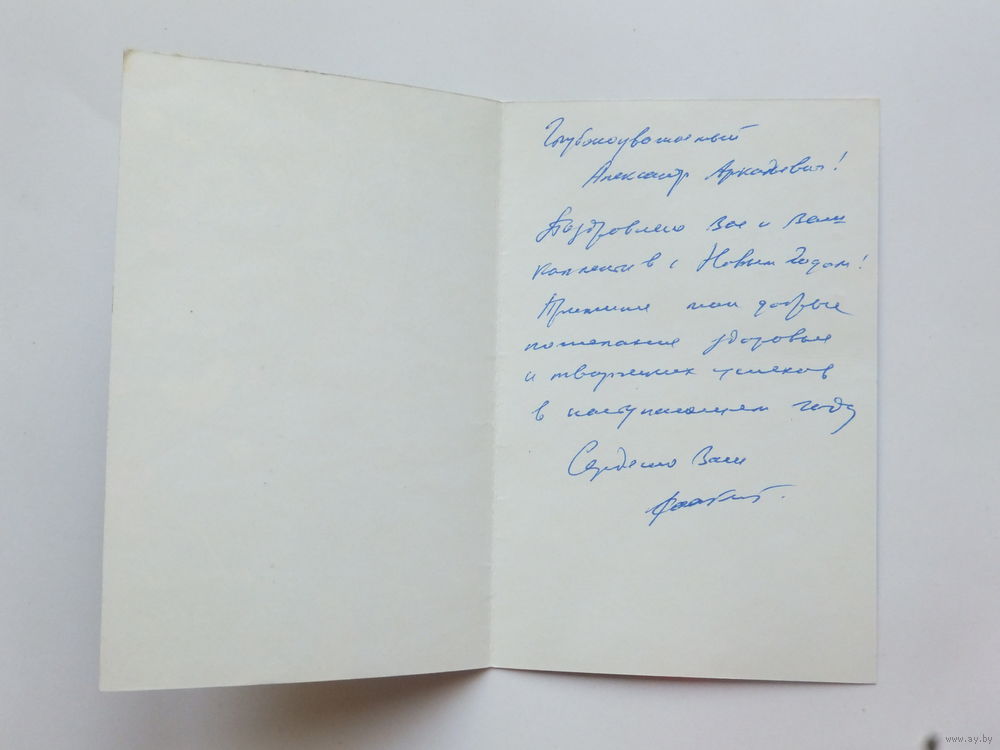 Глубокоуважаемый
Александр Аркадьевич!
Поздравляю Вас и Ваш
коллектив с Новым Годом!
Примите мои добрые
пожелания здоровья
и творческих успехов
в наступающем году
Сердечно Ваш
www.ay.by